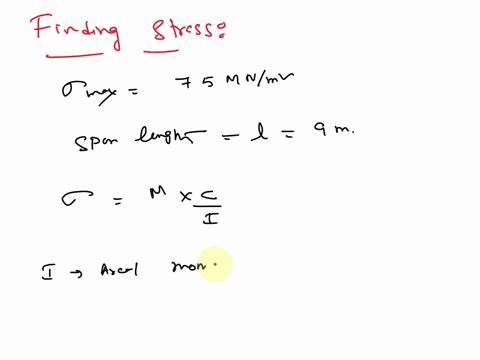 Finding Stress:
σmax = 75 MN/m²
Span length = l = 9 m.
σ = M × C/I
I → Areal mom